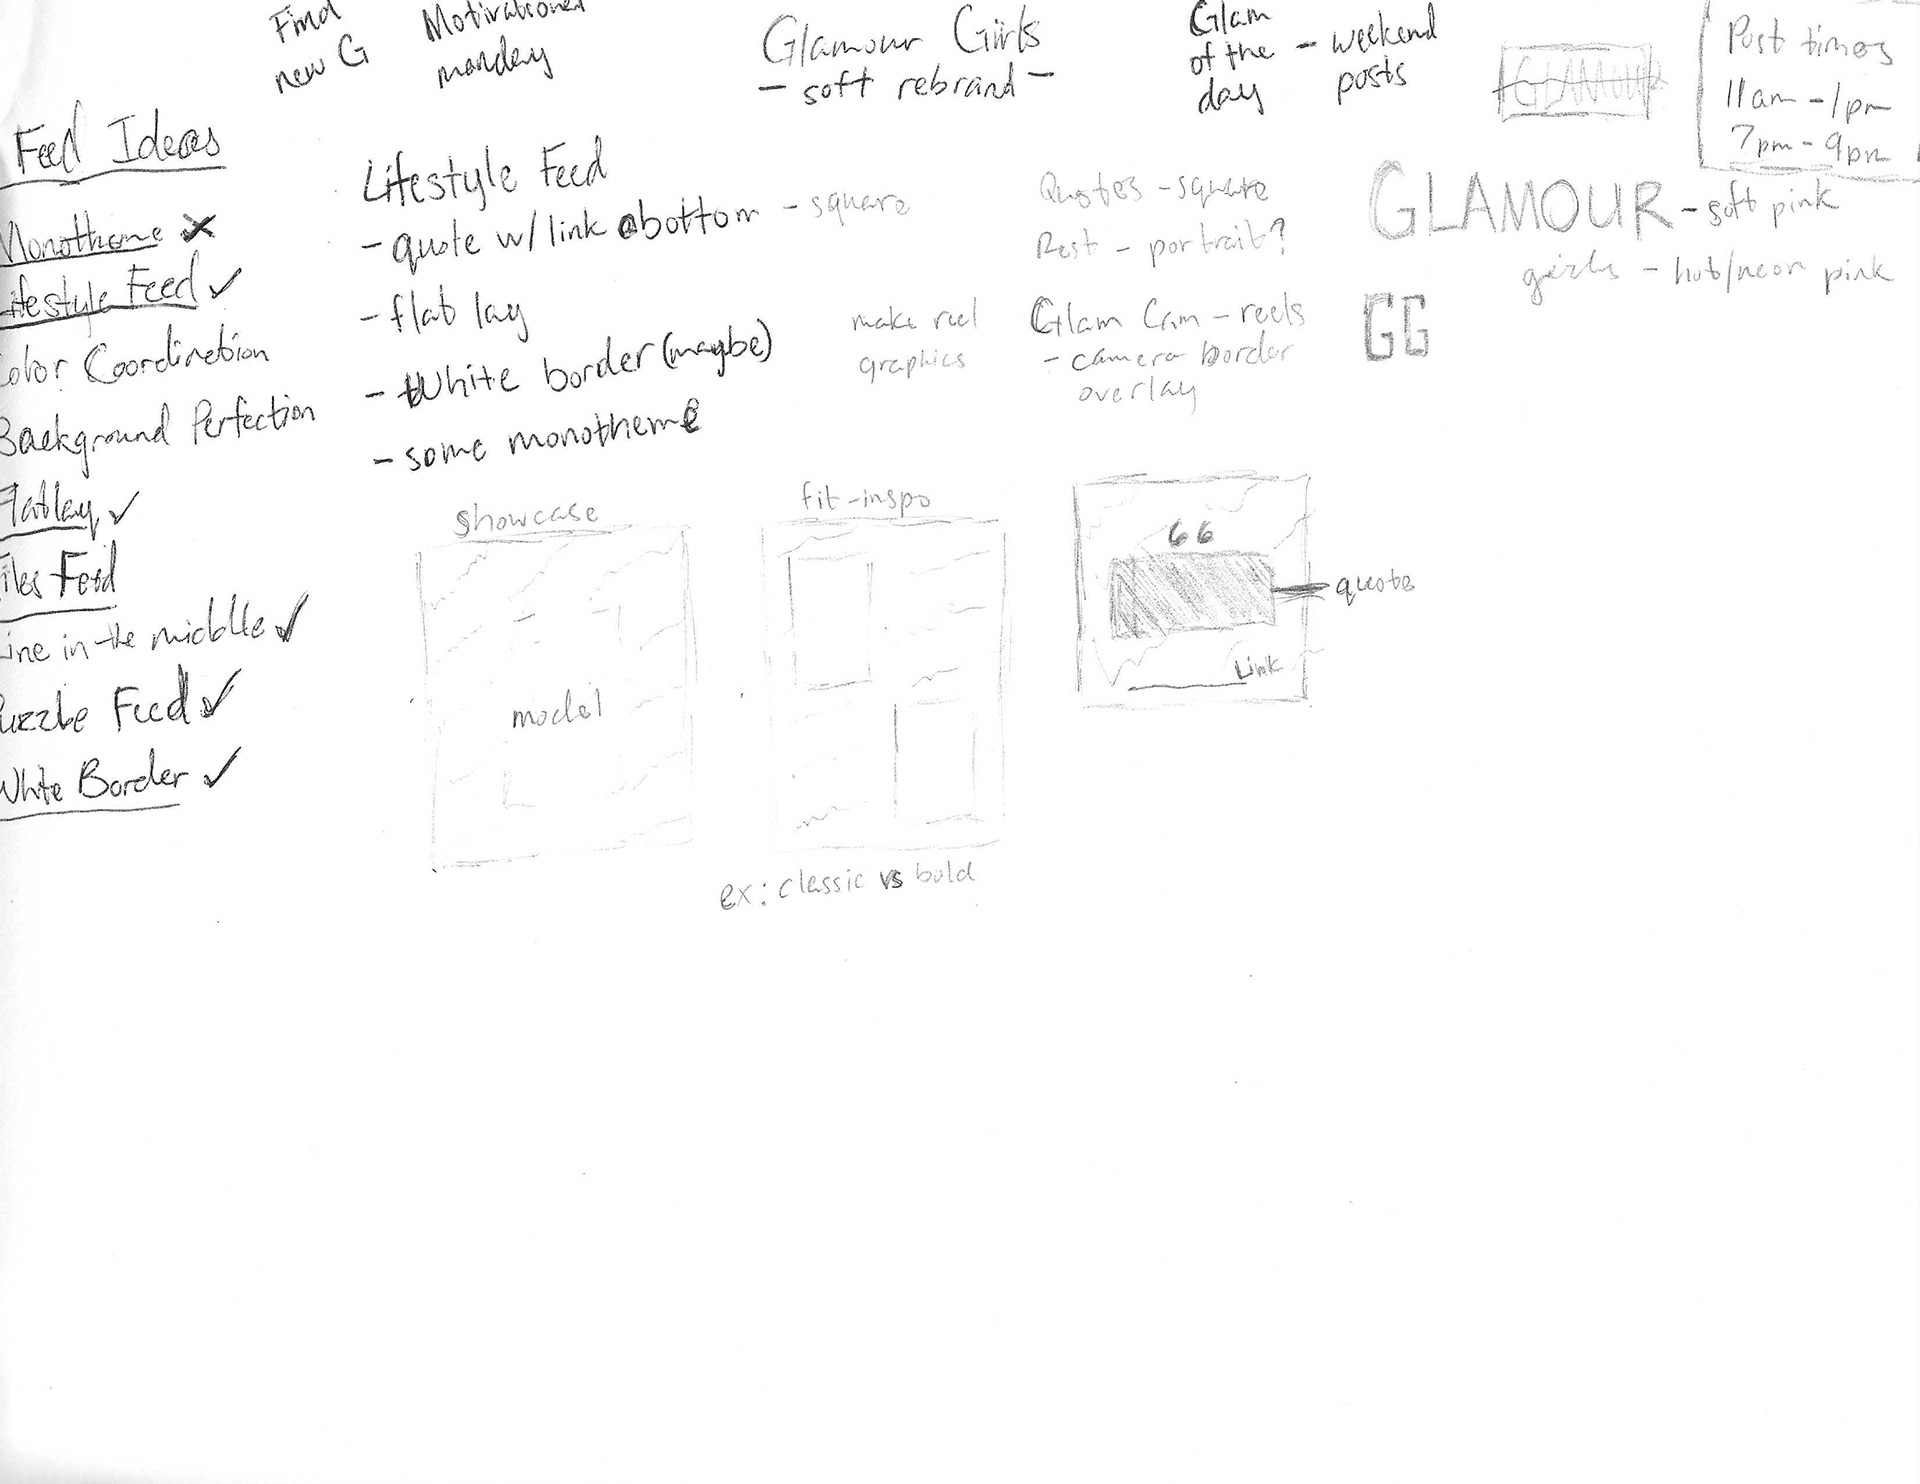 Find
new G
Motivational
monday
Glamour Girls
- soft rebrand -
Glam
of the
day
- weekend
posts
GLAMOUR
Post times
11am - 1pm
7pm - 9pm
Feed Ideas
Monotheme ✗
Lifestyle Feed ✓
Color Coordination
Background Perfection
Flatlay ✓
Tiles Feed
Line in the middle ✓
Puzzle Feed ✓
White Border ✓
Lifestyle Feed
- quote w/ link @bottom - square
- flat lay
- White border (maybe)
- some monotheme
Quotes - square
Rest - portrait?
make reel
graphics
Glam Cam - reels
- camera border
overlay
GLAMOUR - soft pink
girls - hot/neon pink
GG
showcase
model
fit-inspo
ex: classic vs bold
66
quote
Link